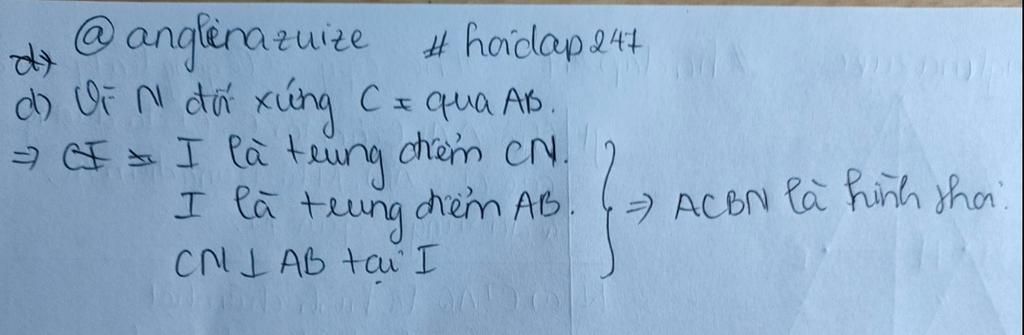 @anglenazuize #hoidap247
d)
d) Vì N đối xứng C qua AB.
⇒ I là trung điểm CN.
I là trung điểm AB.
CN ⊥ AB tại I
} ⇒ ACBN là hình thoi.